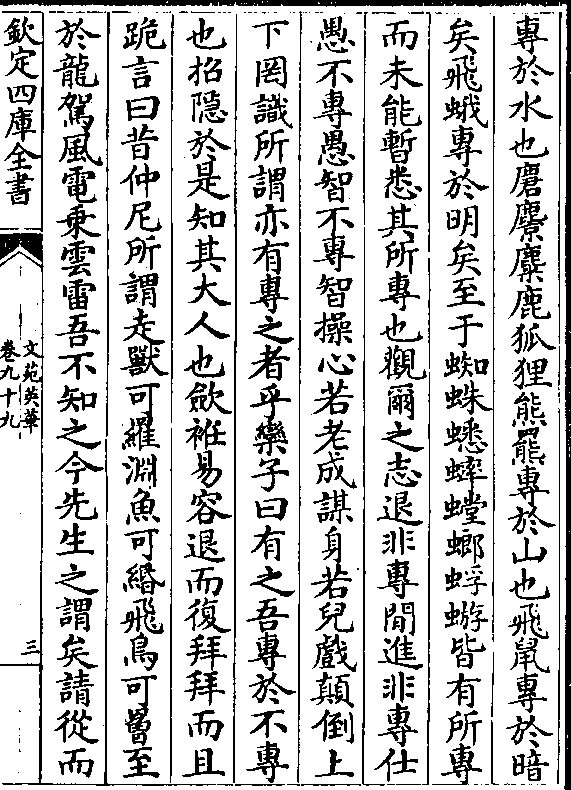 專於水也麏麖麋鹿狐狸熊羆專於山也飛鼠專於暗
矣飛蛾專於明矣至于蜘蛛蟋蟀螳螂蜉蝣皆有所專
而未能暫悉其所專也觀爾之志退非專閒進非專仕
愚不專愚智不專智操心若老成謀身若兒戲顛倒上
下罔識所謂亦有專之者乎欒子曰有之吾專於不專
也招隐於是知其大人也歛袵易容退而復拜拜而且
跪言曰昔仲尼所謂走獸可羅淵魚可緡飛鳥可罾至
於龍駕風電乗雲雷吾不知之今先生之謂矣請從而
欽定四庫全書
文苑英華
卷九十九
三